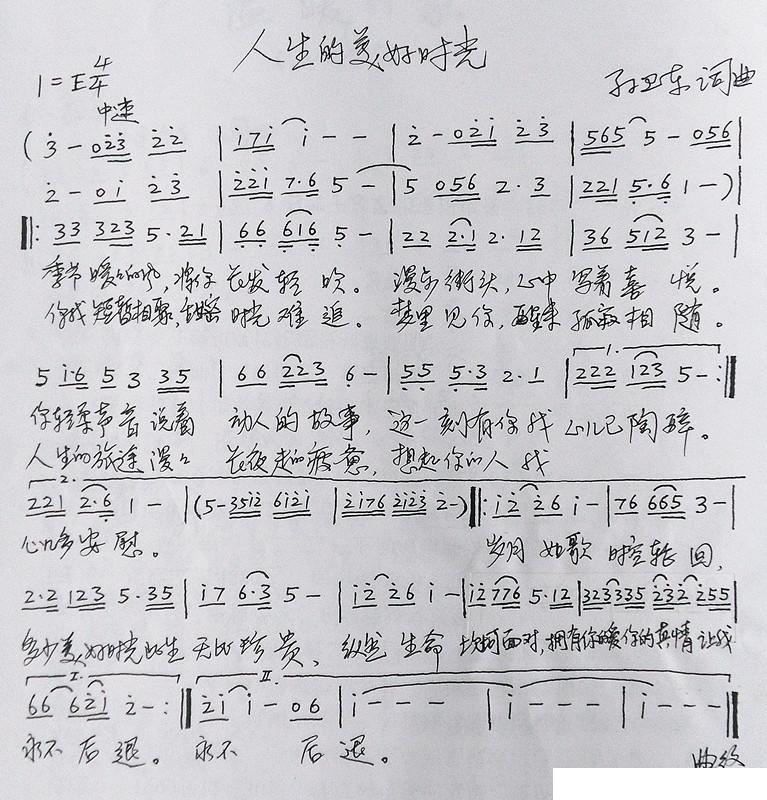 人生的美好时光
1=E 4/4
中速
孙卫东 词曲
(3̇ - 02̇3̇ 2̇2̇ | i7i i - - | 2̇ - 02̇i 2̇3̇ | 565 5 - 056 |
2̇ - 0i 2̇3̇ | 2̇2̇i 7·6 5 - | 5 056 2·3 | 221 5·6 1 -)|
‖: 33 323 5·21 | 66 616 5 - | 22 2·1 2·12 | 36 512 3 - |
季节暖暖的风,将你长发轻吹。漫步街头,心中写着喜悦。
你我短暂相聚,时光难追。梦里见你,醒来孤寂相随。
5 i·6 5 3 35 | 66 223 6 - | 55 5·3 2·1 | 1. 222 123 5 - :‖
你轻柔声音说着动人的故事,这一刻有你我心儿已陶醉。
人生的旅途漫漫长夜走的疲惫,想起你的人我
2. 221 2·6 1 - |(5-3512̇ 6i2̇i | 2̇i76 2̇i2̇3̇ 2̇-)‖: i2̇ 2̇6 i - | 76 665 3 - |
心儿多安慰。 岁月如歌时空轮回,
2·2 123 5·35 | i7 6·3 5 - | i2̇ 2̇6 i - | i2̇776 5·12 | 323335 2̇32̇ 2̇55 |
多少美好时光此生无比珍贵、纵然生命坎坷面对,拥有你暖你的真情让我
I. 66 62̇i 2̇ - :‖ II. 2̇i i - 06 | i - - - | i - - - | i - - - ‖
永不后退。永不后退。
曲纹